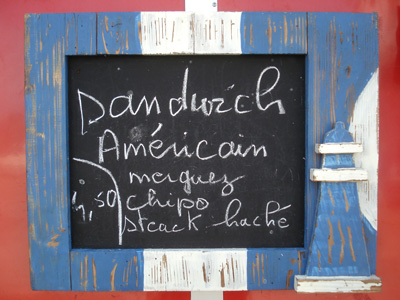 Sandwich
Américain
merguez
4,50 chipo
steack haché